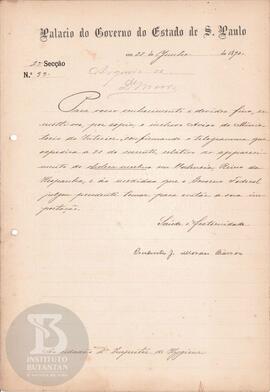 Palacio do Governo do Estado de S. Paulo
em 22 de Junho de 1890.
2ª Secção
N.º 53
Archive-se
Para vosso conhecimento e devidos fins, re-
metto-vos, por copia, o incluso Aviso do Minis-
terio do Interior, confirmando o telegramma que
expedira a 20 do corrente, relativo ao appareci-
mento do cholera-morbus em Valencia, Reino da
Hespanha, e ás medidas que o Governo Federal
julgou prudente tomar para evitar a sua im-
portação.
Saúde e fraternidade
Prudente J. Moraes Barros
Ao cidadão Dr Inspector de Hygiene
INSTITUTO
BUTANTAN